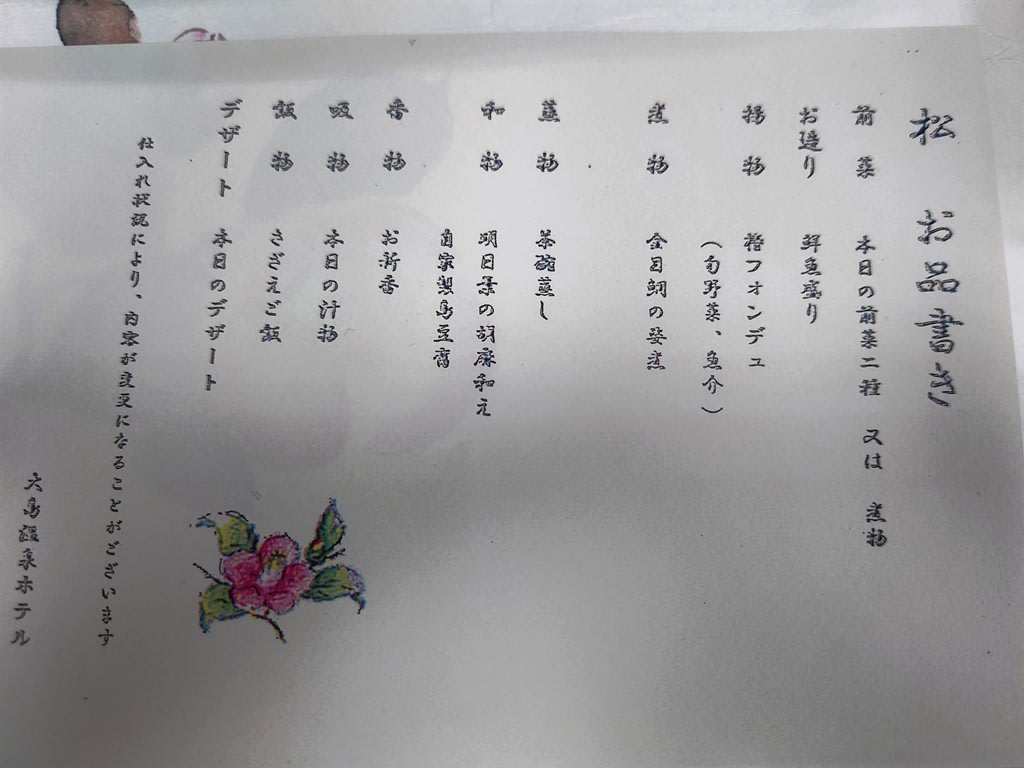 松　お品書き
前　菜　本日の前菜二種　又は　煮物
お造り　鮮魚盛り
揚　物　椿フオンデュ
（旬野菜、魚介）
煮　物　金目鯛の姿煮
蒸　物　茶碗蒸し
和　物　明日葉の胡麻和え
自家製島豆腐
香　物　お新香
吸　物　本日の汁物
飯　物　さざえご飯
デザート　本日のデザート
仕入れ状況により、内容が変更になることがございます
大島温泉ホテル